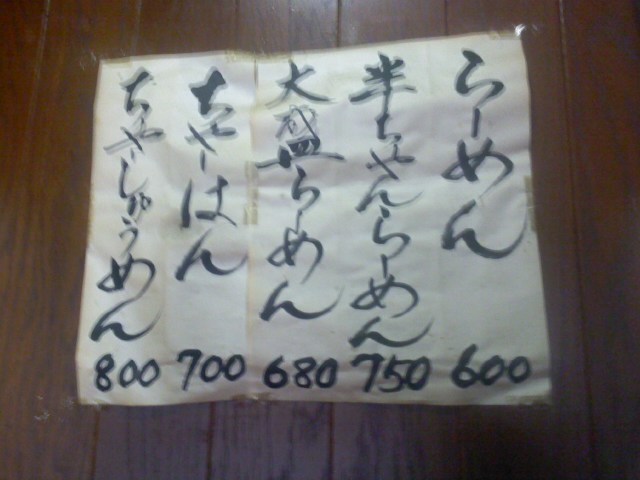 らーめん
600
半ちゃんらーめん
750
大盛らーめん
680
ちゃーはん
700
ちゃーしゅうめん
800